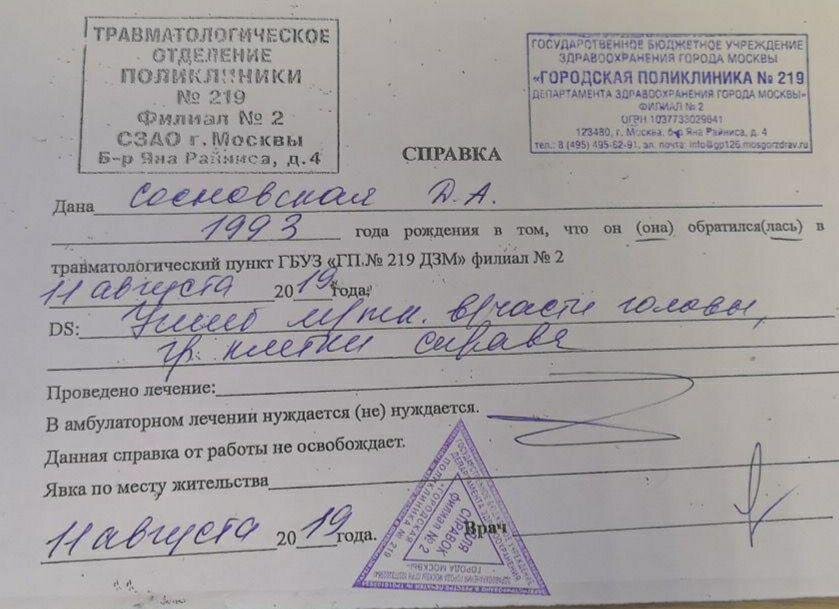 ТРАВМАТОЛОГИЧЕСКОЕ
ОТДЕЛЕНИЕ
ПОЛИКЛИНИКИ
№ 219
Филиал № 2
СЗАО г. Москвы
Б-р Яна Райниса, д. 4
ГОСУДАРСТВЕННОЕ БЮДЖЕТНОЕ УЧРЕЖДЕНИЕ
ЗДРАВООХРАНЕНИЯ ГОРОДА МОСКВЫ
«ГОРОДСКАЯ ПОЛИКЛИНИКА № 219
ДЕПАРТАМЕНТА ЗДРАВООХРАНЕНИЯ ГОРОДА МОСКВЫ»
ФИЛИАЛ № 2
ОГРН 1037733029641
123480, г. Москва, б-р Яна Райниса, д. 4
тел.: 8 (495) 495-62-91, эл. почта: info@gp126.mosgorzdrav.ru
СПРАВКА
Дана Сосновская Д.А.
1993 года рождения в том, что он (она) обратился(лась) в
травматологический пункт ГБУЗ «ГП.№ 219 ДЗМ» филиал № 2
11 августа 2019 года,
DS: Ушиб м/тк. в/части головы,
гр. клетки справа
Проведено лечение:
В амбулаторном лечении нуждается (не) нуждается.
Данная справка от работы не освобождает.
Явка по месту жительства
11 августа 2019 года. Врач
ДЛЯ
СПРАВОК
Филиал № 2
ГОРОДСКАЯ
ПОЛИКЛИНИКА № 219